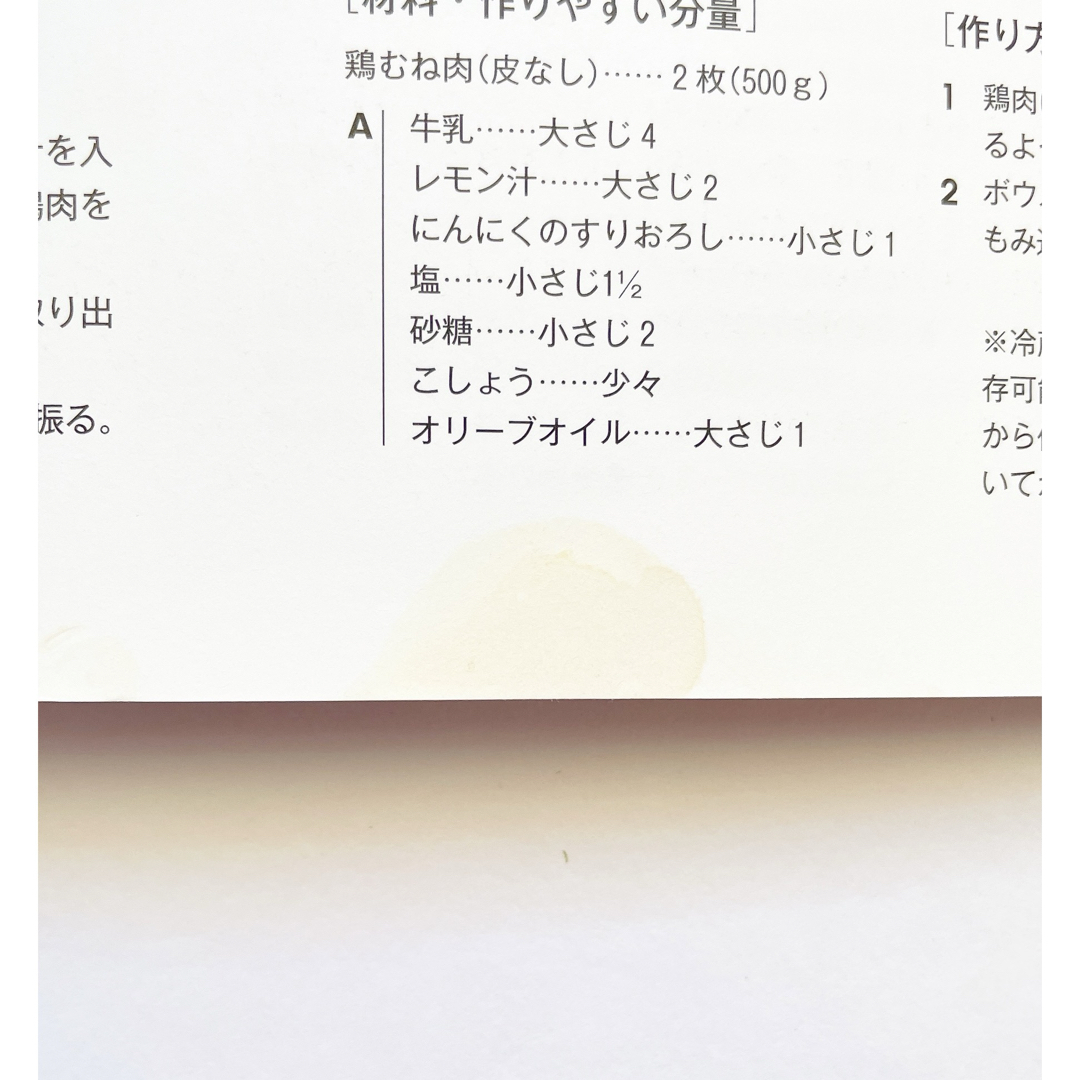 を入
肉を
り出
振る。
[材料・作りやすい分量]
鶏むね肉(皮なし)……2枚(500g)
A
牛乳……大さじ4
レモン汁……大さじ2
にんにくのすりおろし……小さじ1
塩……小さじ1½
砂糖……小さじ2
こしょう……少々
オリーブオイル……大さじ1
[作り方
1 鶏肉
るよ
2 ボウ
もみ
※冷
存可能
から
いて